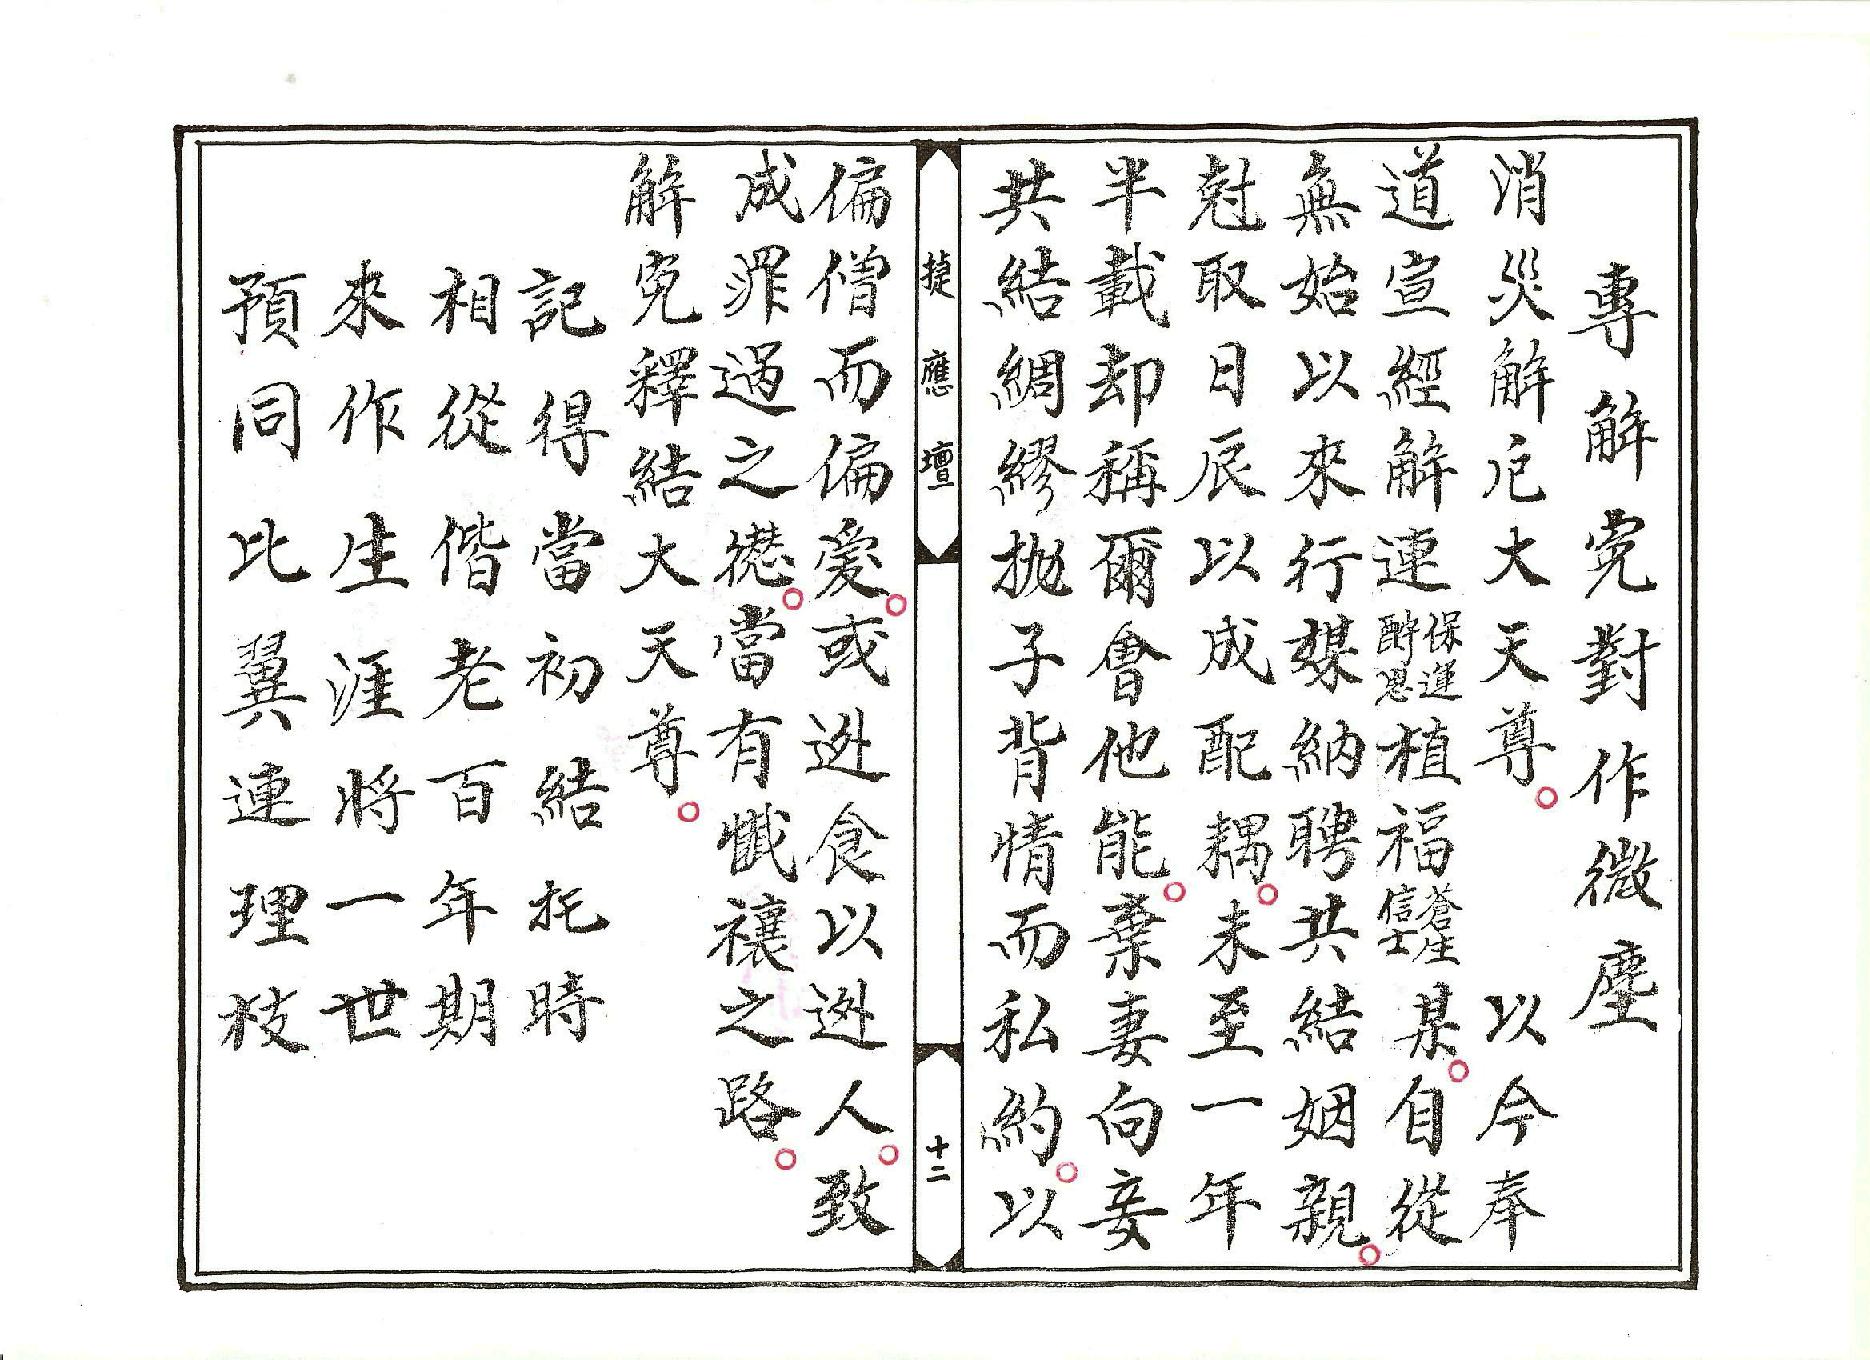 專解冤對作微塵
消災解厄大天尊。 以今奉
道宣經解連保運酧恩植福蒼生信士某。自從
無始以來行媒納聘共結姻親。
尅取日辰以成配耦。未至一年
半載却稱爾會他能。棄妻向妾
共結綢繆拋子背情而私約。以
捷應壇
十二
偏僧而偏愛。或迯食以迯人。致
成罪過之愆。當有懺禳之路。
解冤釋結大天尊。
記得當初結托時
相從偕老百年期
來作生涯將一世
預同比翼連理枝